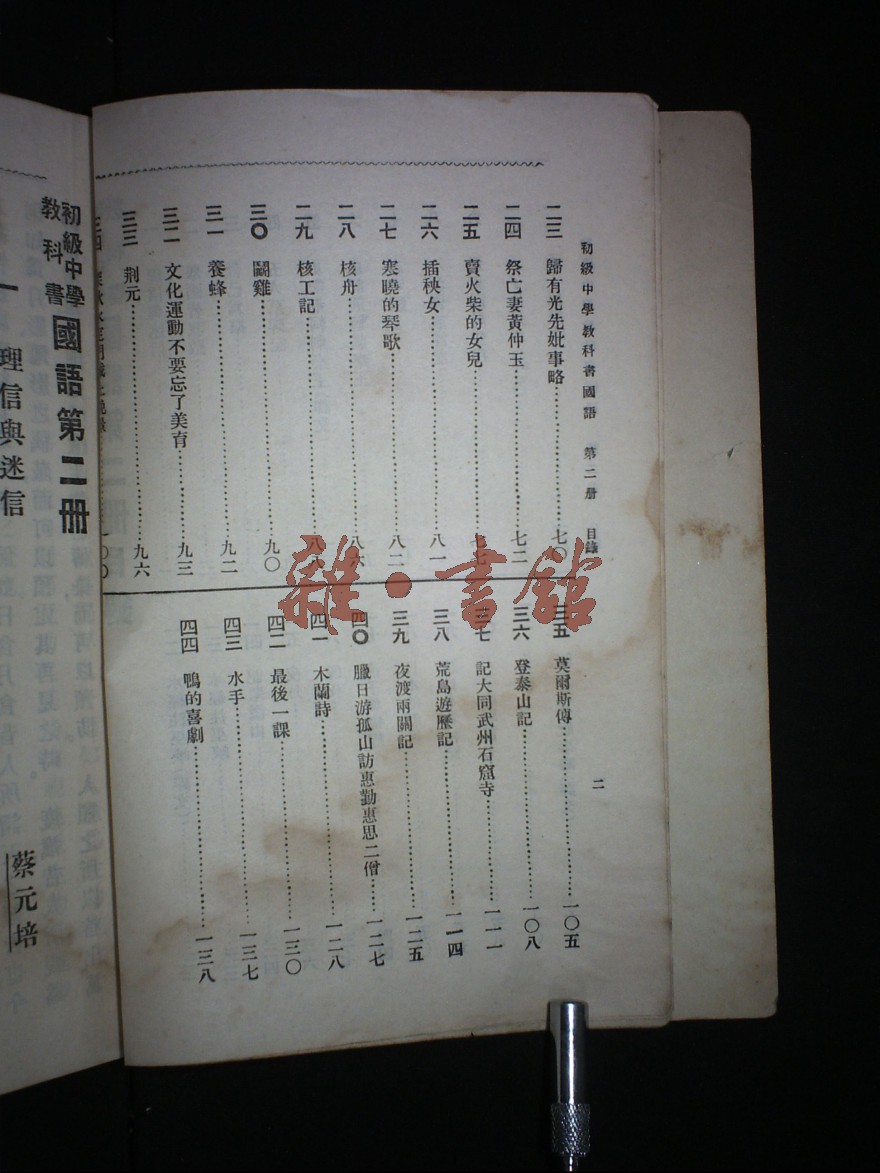 初級中學教科書國語 第二册 目錄 二
二三 歸有光先妣事略……七〇
二四 祭亡妻黃仲玉……七二
二五 賣火柴的女兒……七七
二六 插秧女……八一
二七 寒曉的琴歌……八二
二八 核舟……八六
二九 核工記……八八
三〇 鬭雞……九〇
三一 養蜂……九二
三二 文化運動不要忘了美育……九三
三三 荆元……九六
三四 一〇〇
三五 莫爾斯傳……一〇五
三六 登泰山記……一〇八
三七 記大同武州石窟寺……一一一
三八 荒島遊歷記……一一四
三九 夜渡兩關記……一二五
四〇 臘日游孤山訪惠勤惠思二僧……一二七
四一 木蘭詩……一二八
四二 最後一課……一三〇
四三 水手……一三七
四四 鴨的喜劇……一三八
雜·書館
初級中學教科書 國語第二册
一 理信與迷信 蔡元培